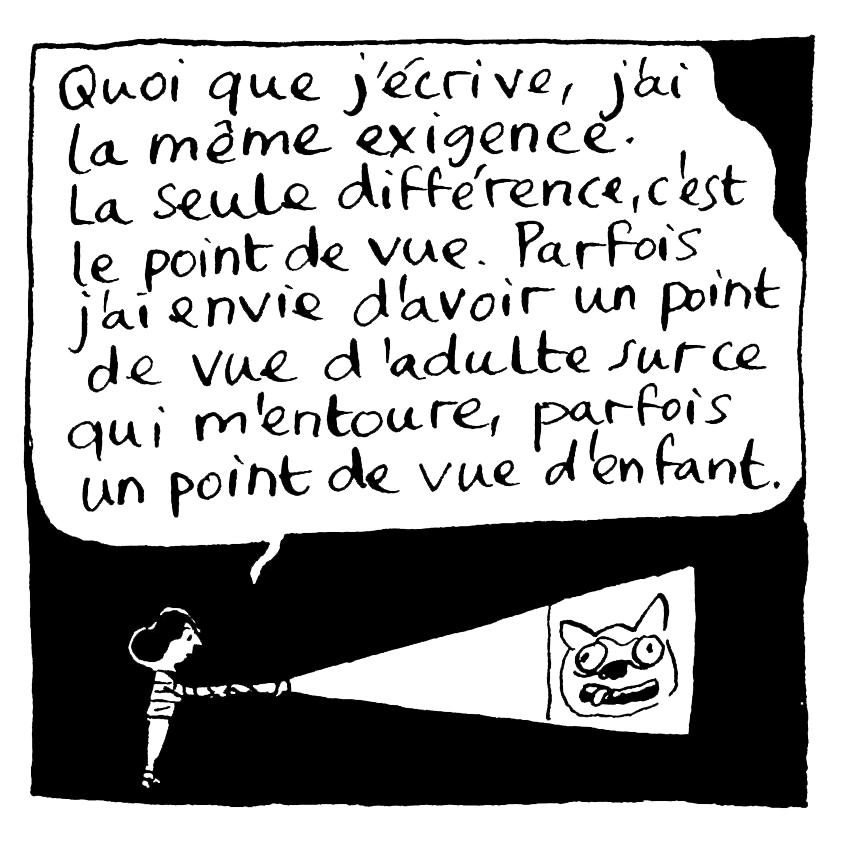 Quoi que j'écrive, j'ai
la même exigence.
La seule différence, c'est
le point de vue. Parfois
j'ai envie d'avoir un point
de vue d'adulte sur ce
qui m'entoure, parfois
un point de vue d'enfant.